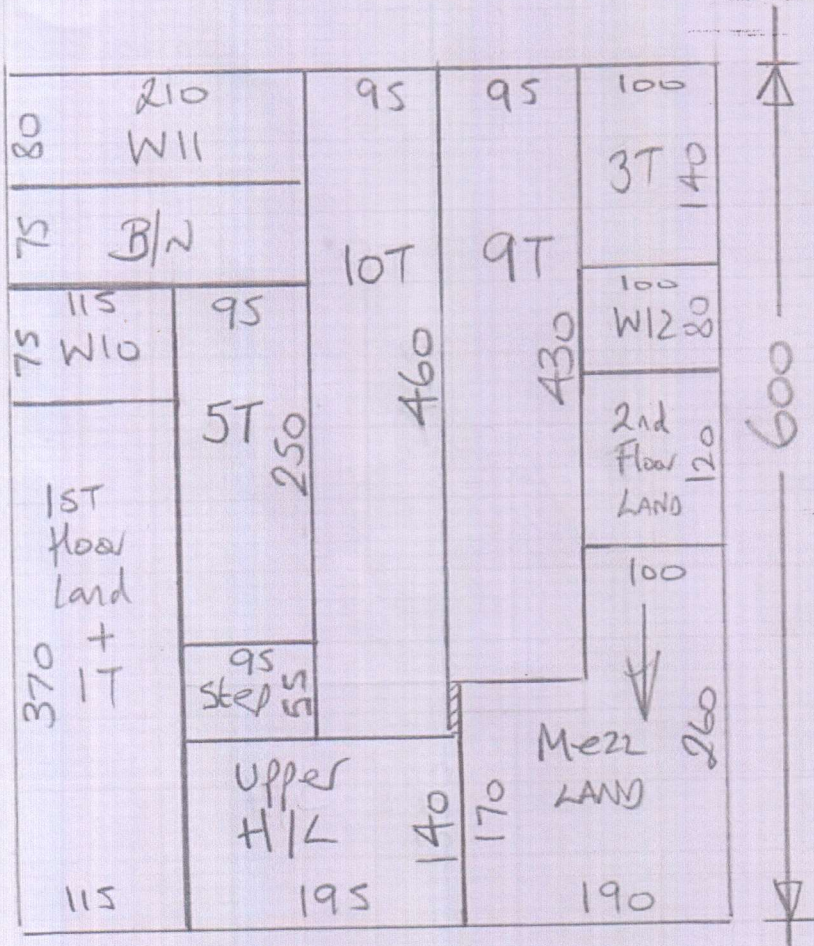 210
80
W11
75
B/N
115
75
W10
95
5T
250
1ST
floor
Land
+
1T
370
115
95
Step
55
Upper
H/L
140
195
95
10T
460
95
9T
430
100
3T
140
100
W12
80
2nd
Floor
LAND
120
100
Mezz
LAND
260
170
190
600